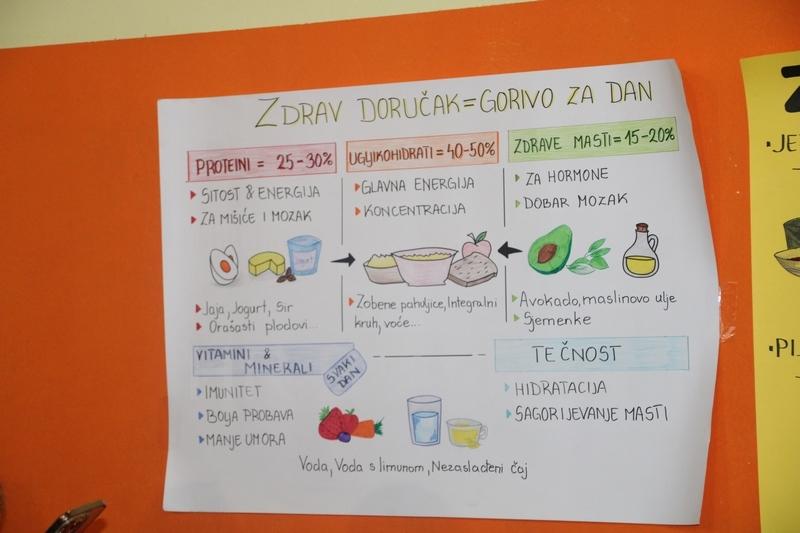 ZDRAV DORUČAK=GORIVO ZA DAN
PROTEINI = 25-30%
SITOST & ENERGIJA
ZA MIŠIĆE I MOZAK
Jaja, Jogurt, Sir
Orašasti plodovi...
UGLJIKOHIDRATI=40-50%
GLAVNA ENERGIJA
KONCENTRACIJA
Zobene pahuljice, Integralni
kruh, voće...
ZDRAVE MASTI=15-20%
ZA HORMONE
DOBAR MOZAK
Avokado, maslinovo ulje
Sjemenke
VITAMINI &
MINERALI
SVAKI
DAN
IMUNITET
BOLJA PROBAVA
MANJE UMORA
TEČNOST
HIDRATACIJA
SAGORIJEVANJE MASTI
Voda, Voda s limunom, Nezaslađeni čaj